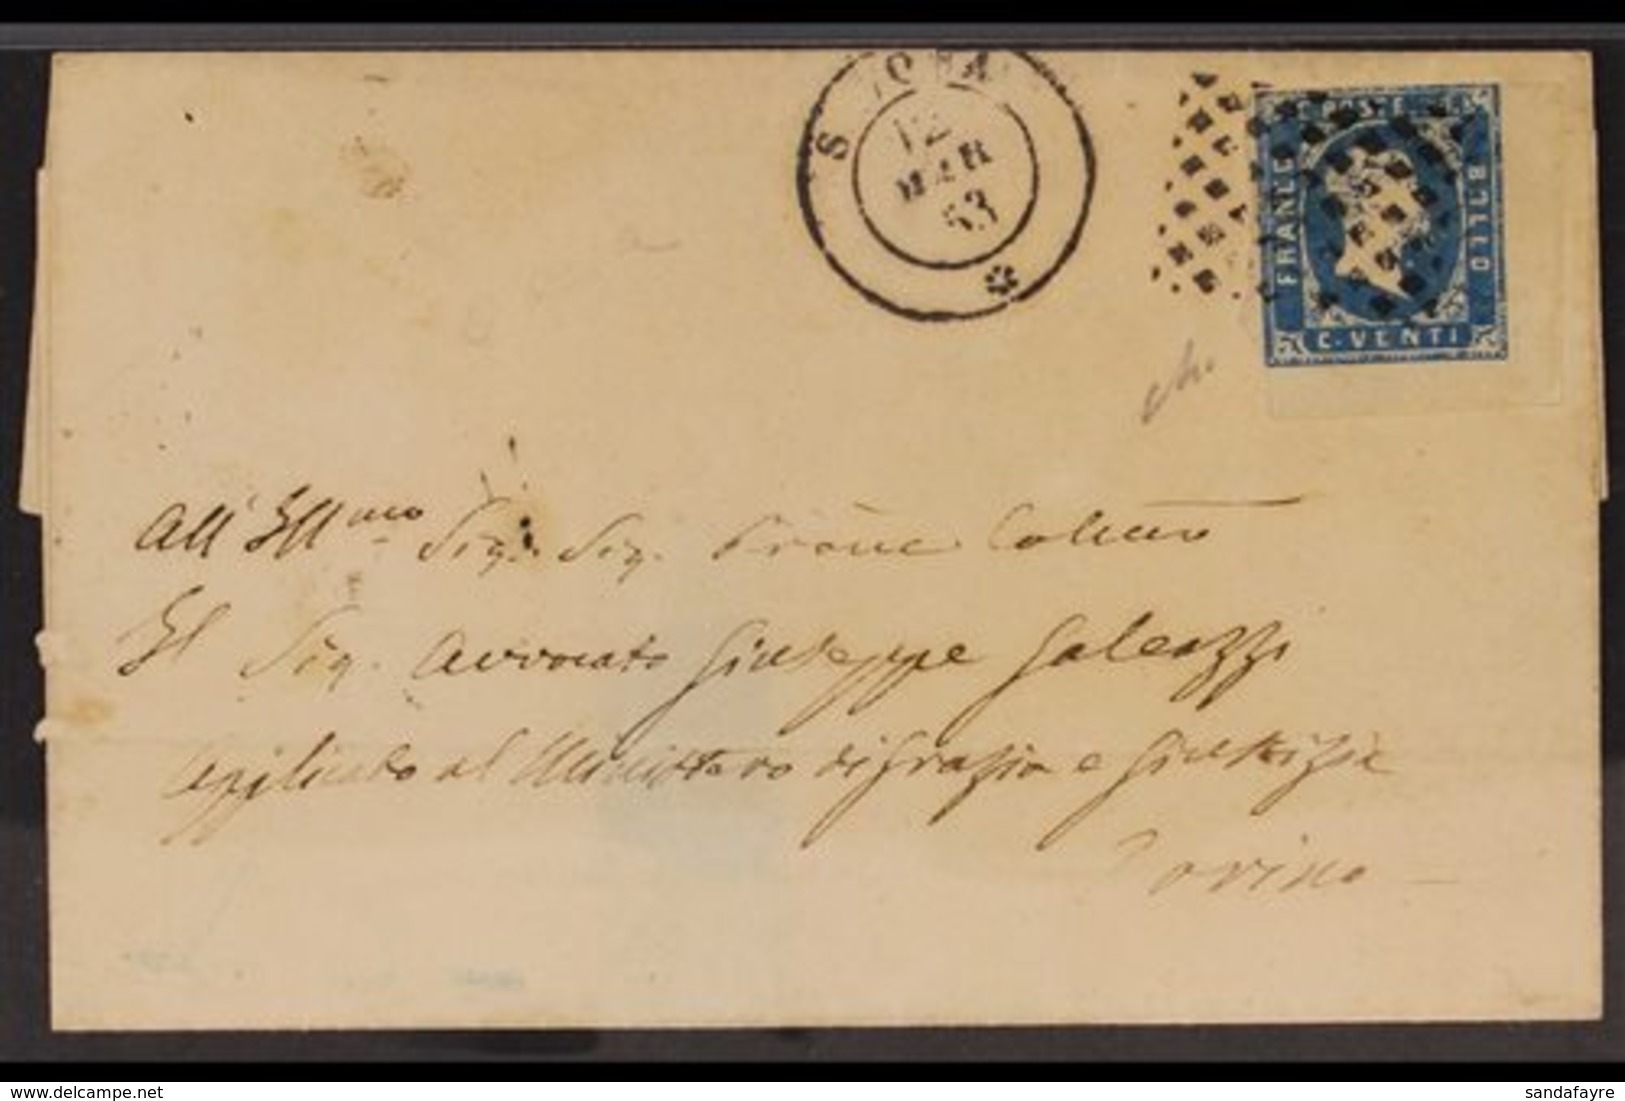 S
12
MAR
53
POSTE
FRANCO
BOLLO
C. VENTI
All' Ill.mo Sig. Sig. Colmo
Il Sig. Avvocato Giuseppe Galeazzi
applicato al Ministero di Grazia e Giustizia
Torino
© delcampe.net
sandafayre